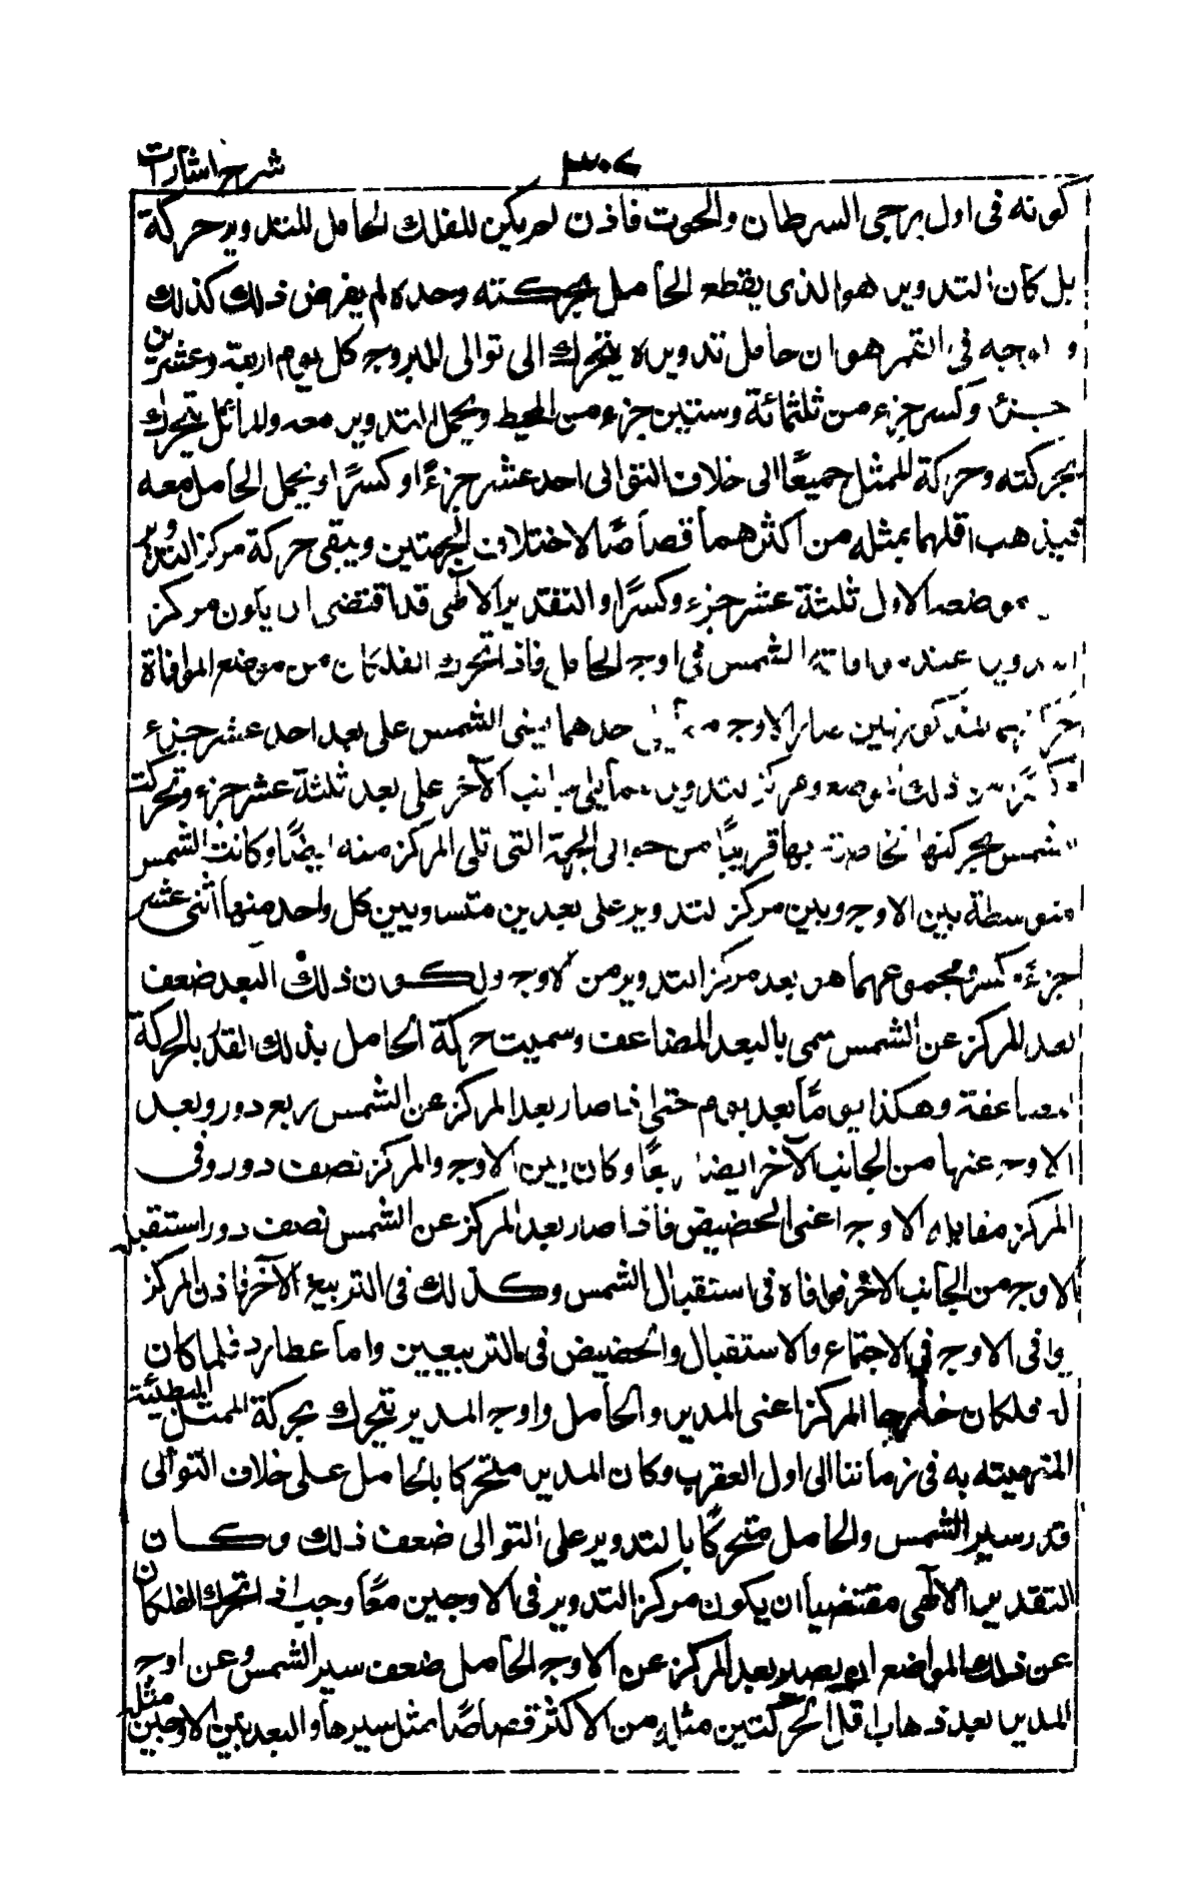 شرح اشارات
٣٠٧
كونه فى اول برجى السرطان والحوت فاذن لم يكن للفلك الحامل للتدوير حركة
بل كان التدوير هو الذى يقطع الحامل بحركته وحده لم يفرض ذلك كذلك
فى القمر هو ان حامل تدويره يتحرك الى توالى البروج كل يوم اربعة وعشرين
جزء وكسر جزء من ثلثمائة وستين جزء من المحيط ويحمل التدوير معه والمائل يتحرك
بحركته وحركة الممثل جميعًا الى خلاف التوالى احد عشر جزءًا وكسرًا ويحمل الحامل معه
فيذهب اقلهما بمثله من اكثرهما قصاصًا لاختلاف الجهتين ويبقى حركة مركز التدوير
موضعه الاول ثلثة عشر جزء وكسرًا والتقدير الالٰهى قد اقتضى ان يكون مركز
الشمس فى اوج الحامل فاذا تحرك الفلكان من موضع الموافاة
صار الاوج حدهما يبنى الشمس على بعد احد عشر جزء
ذلك الآخر على بعد ثلثة عشر جزء وتحركت
الشمس بحركتها الخاصة بها قريبًا من جزء الى الجهة التى تلى المركز منه ايضًا وكانت الشمس
متوسطة بين الاوج وبين مركز التدوير على بعدين متساويين كل واحد منها اثنى عشر
جزءً وكسرًا ومجموعهما هو بعد مركز التدوير من الاوج ولكون ذلك البعد ضعف
بعد المركز عن الشمس سمى بالبعد المضاعف وسميت حركة الحامل بذلك القدر بالحركة
المضاعفة وهكذا يومًا بعد يوم حتى اذا صار بعد المركز عن الشمس ربع دور وبعد
الاوج عنها من الجانب الآخر ايضا ربعًا وكان بين الاوج والمركز نصف دور وفى
المركز مقابلة الاوج اعنى الحضيض فاذا صار بعد المركز عن الشمس نصف دور استقبل
الاوج من الجانب الاخر فوافاه فى استقبال الشمس وكذلك فى التربيع الآخر فاذن المركز
يوافى الاوج فى الاجتماع والاستقبال والحضيض فى التربيعيين واما عطارد فلما كان
له فلكان خارجا المركز اعنى المدير والحامل واوج المدير يتحرك بحركة الممثل البطيئة
المنهية به فى زماننا الى اول العقرب وكان المدير متحركا بالحامل على خلاف التوالى
قدر سير الشمس والحامل متحركًا بالتدوير على التوالى ضعف ذلك وكان
التقدير الالٰهى مقتضيا ان يكون مركز التدوير فى الاوجين معًا وجب اذا تحرك الفلكان
عن ذلك المواضع ان يصير بعد المركز عن الاوج الحامل ضعف سير الشمس وعن اوج
المدير بعد ذهاب اقل الحركتين مثله من الاكثر قصاصًا بمثل سيرها والبعد بين الاوجين مثل